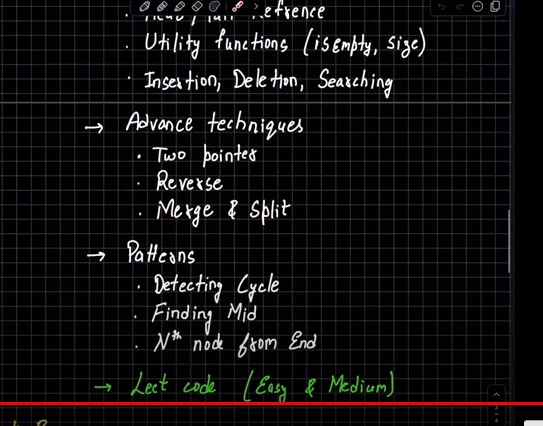 · Utility functions (isEmpty, size)
· Insertion, Deletion, Searching
→ Advance techniques
· Two pointer
· Reverse
· Merge & Split
→ Patterns
· Detecting Cycle
· Finding Mid
· Nth node from End
→ Leet code (Easy & Medium)